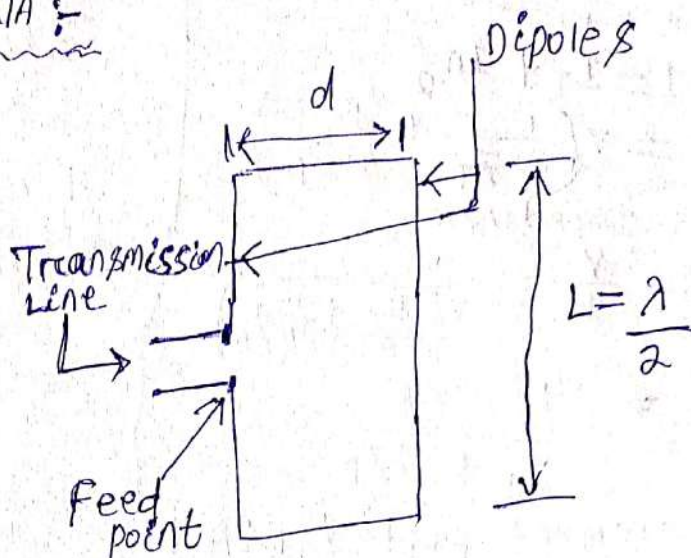 Dipoles
d
Transmission
Line
L = λ/2
Feed
point